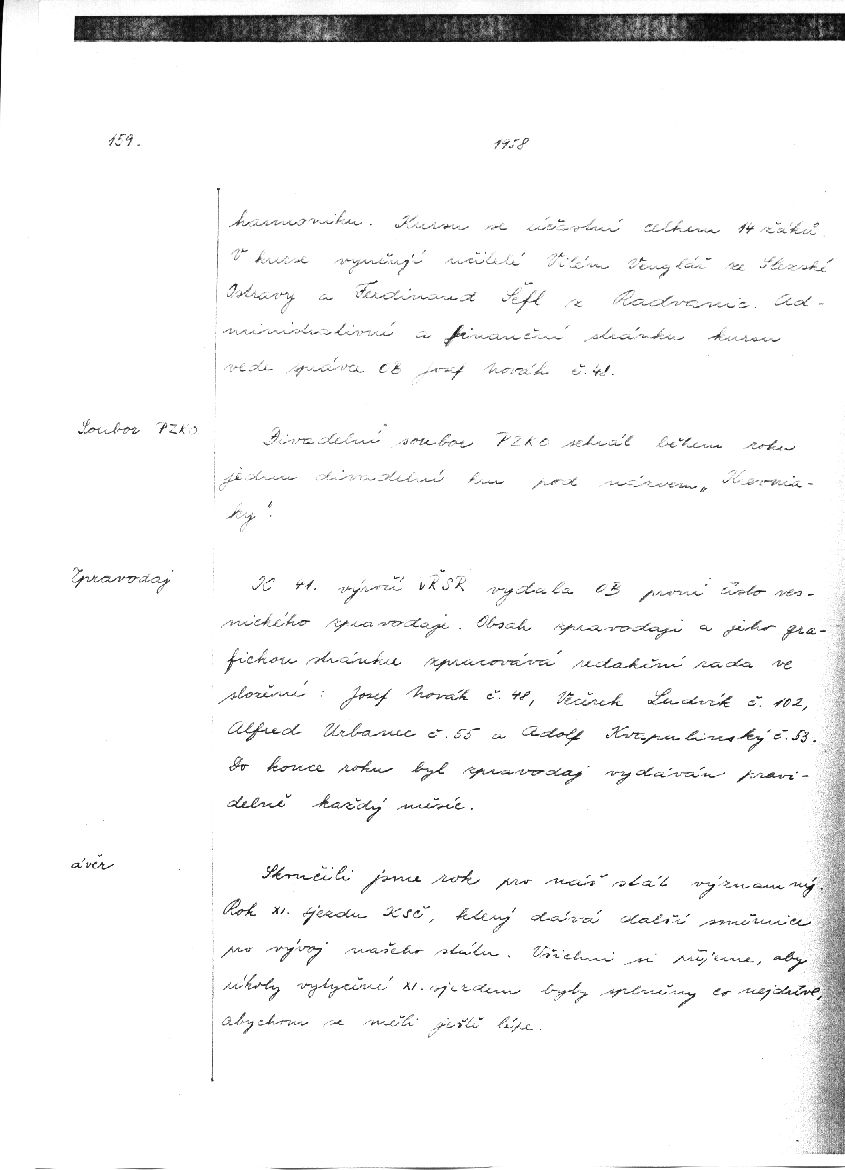 159.
1958
harmoniku. Kursu se účastní celkem 14 žáků.
V kurse vyučují učitelé Vilém Venglář ze Slezské
Ostravy a Ferdinand Šéfl z Radvanic. Ad-
ministrativní a finanční stránku kursu
vede správce OB Josef Novák č. 48.
Soubor PZKO
Divadelní soubor PZKO sehrál během roku
jednu divadelní hru pod názvem „
ky".
Zpravodaj
K 41. výročí VŘSR vydala OB první číslo ves-
nického zpravodaje. Obsah zpravodaje a jeho gra-
fickou stránku zpracovává redakční rada ve
složení: Josef Novák č. 48, Večerek Ludvík č. 102,
Alfred Urbanec č. 55 a Adolf Kvapulinský č. 53.
Do konce roku byl zpravodaj vydáván pravi-
delně každý měsíc.
ávěr
Skončili jsme rok pro náš stát významný.
Rok XI. sjezdu KSČ, který dává další směrnice
pro vývoj našeho státu. Všichni si přejeme, aby
úkoly vytyčené XI. sjezdem byly splněny co nejdříve,
abychom se měli ještě lépe.